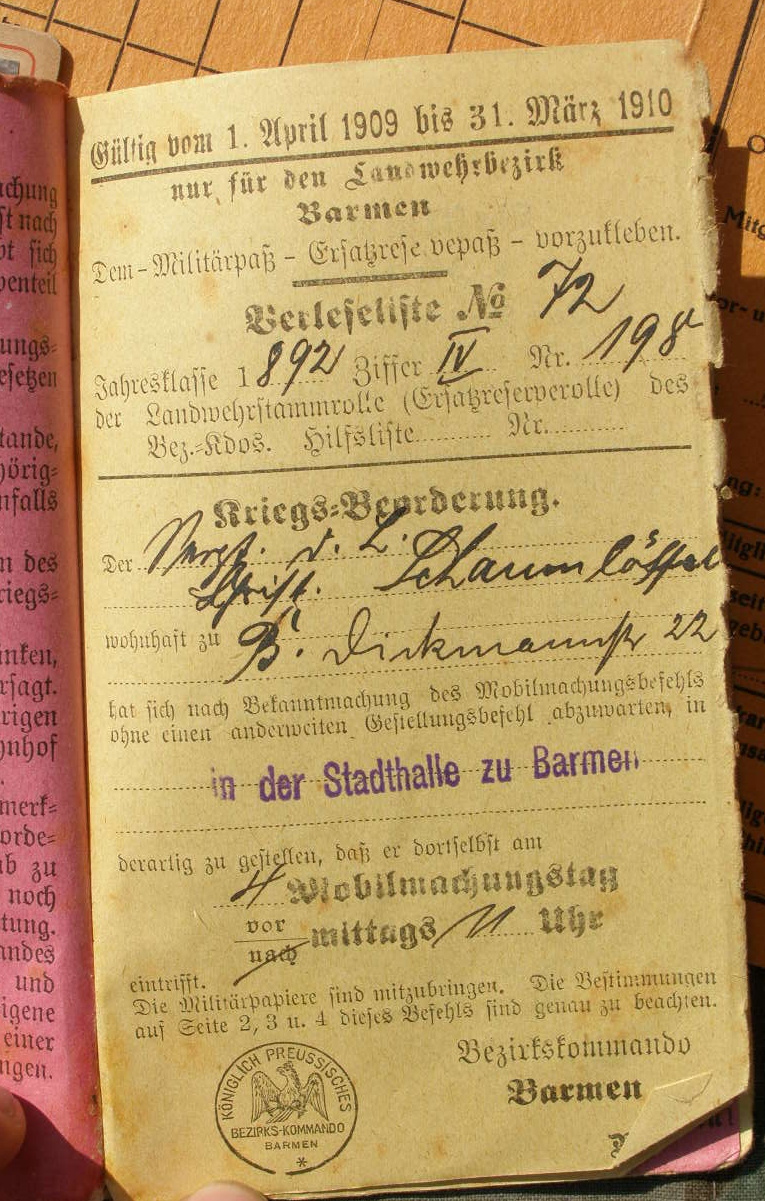 Gültig vom 1. April 1909 bis 31. März 1910
nur für den Landwehrbezirk
Barmen
Dem-Militärpaß - Ersatzreservepaß - vorzukleben.
Verleseliste № 72
Jahresklasse 1892 Ziffer IV Nr. 198
der Landwehrstammrolle (Ersatzreserverolle) des
Bez.-Kdos. Hilfsliste.......... Nr..........
Kriegs-Beorderung.
Der d. L.
Schaumlöffel
wohnhaft zu B. Dickmannstr 22
hat sich nach Bekanntmachung des Mobilmachungsbefehls
ohne einen anderweiten Gestellungsbefehl abzuwarten, in
in der Stadthalle zu Barmen
derartig zu gestellen, daß er dortselbst am
4 Mobilmachungstag
vor
nach mittags 11 Uhr
eintrifft.
Die Militärpapiere sind mitzubringen. Die Bestimmungen
auf Seite 2, 3 u. 4 dieses Befehls sind genau zu beachten.
Bezirkskommando
Barmen
KÖNIGLICH PREUSSISCHES
BEZIRKS-KOMMANDO
BARMEN
achung
st nach
bt sich
enteil
ungs-
esetzen
tande,
hörig-
nfalls
n des
riegs-
nken,
rsagt.
rigen
hnhof
merk-
orde-
ab zu
noch
tung.
andes
und
igene
einer
ngen.